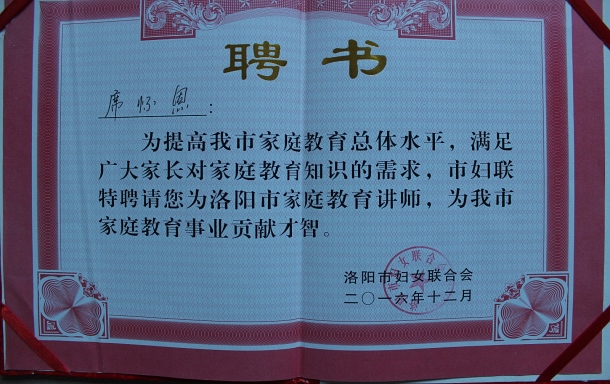 聘书
席怀恩：
为提高我市家庭教育总体水平，满足
广大家长对家庭教育知识的需求，市妇联
特聘请您为洛阳市家庭教育讲师，为我市
家庭教育事业贡献才智。
洛阳市妇女联合会
二〇一六年十二月